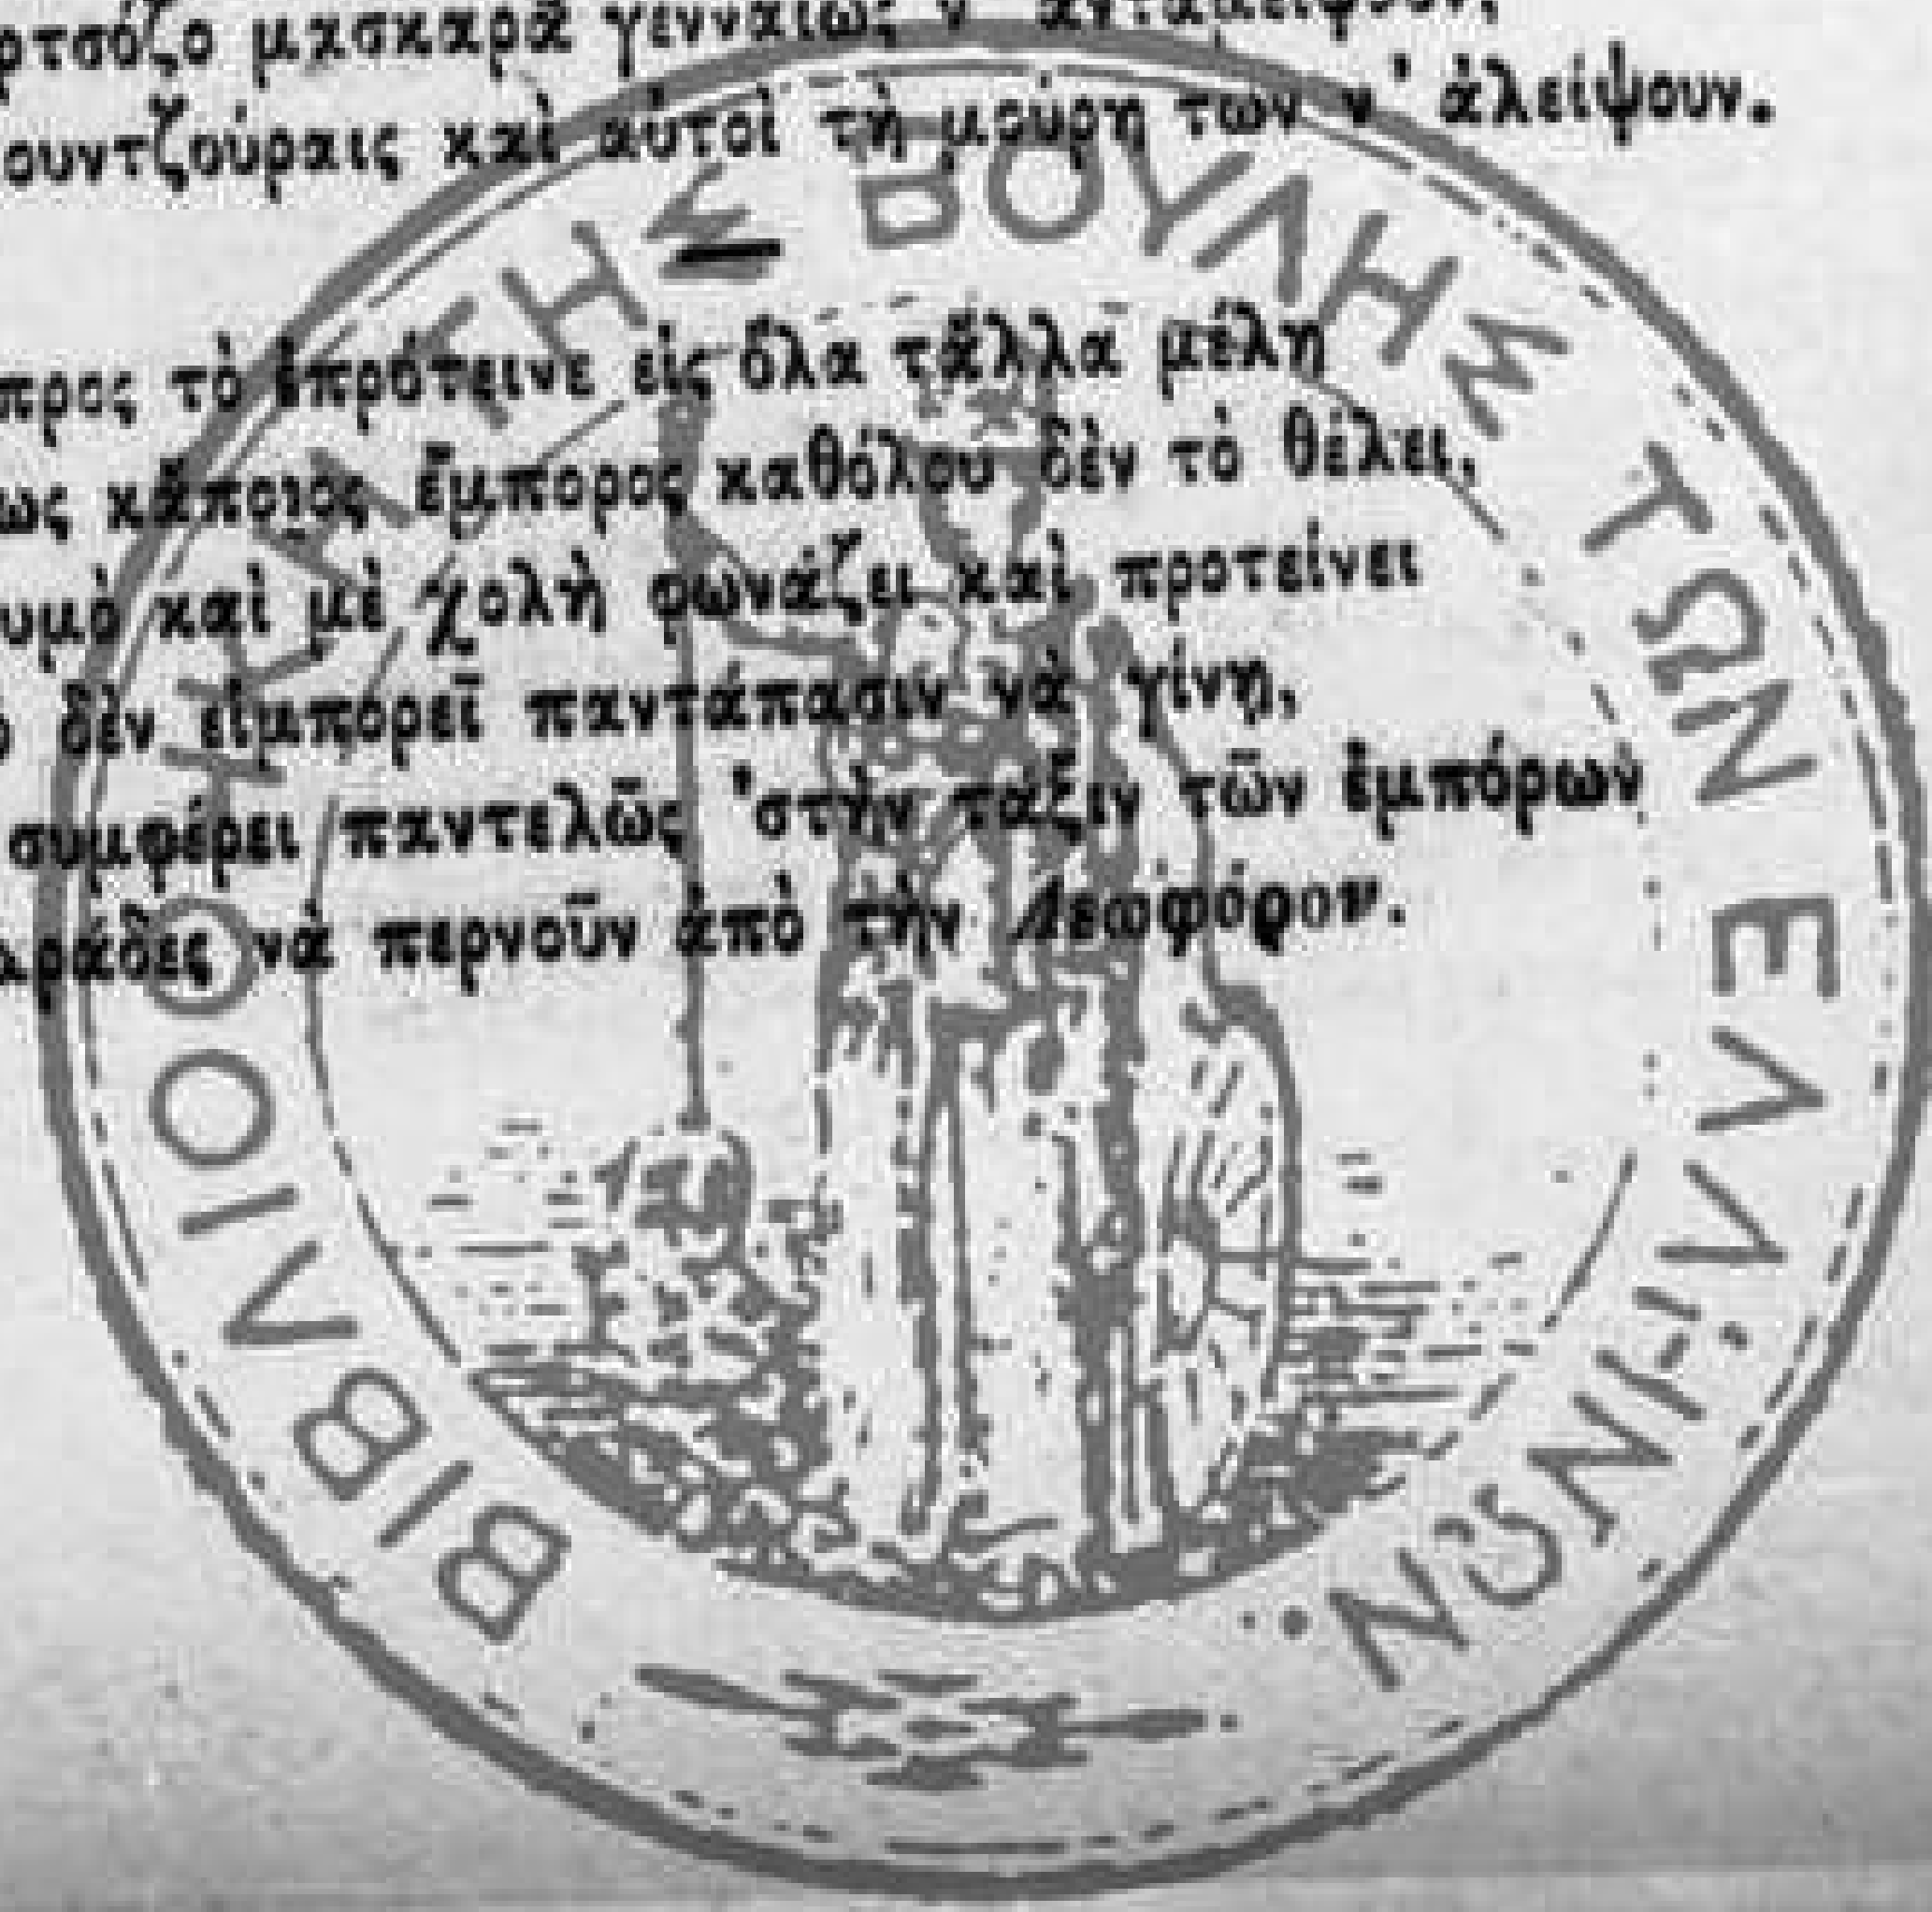 ρτσόζο μασκαρᾶ γενναίως ν'
ουντζούραις καὶ αὐτοὶ τὴ μούρη των ν' ἀλείψουν.
προς τὸ ἐπρότεινε εἰς ὅλα τἄλλα μέλη
ως κἄποιος ἔμπορος καθόλου δὲν τὸ θέλει,
υμὸ καὶ μὲ χολὴ φωνάζει καὶ προτείνει
ὸ δὲν εἰμπορεῖ παντάπασιν νὰ γίνῃ,
συμφέρει παντελῶς 'στὴν τάξιν τῶν ἐμπόρων
αράδες νὰ περνοῦν ἀπὸ τὴν Λεωφόρον.
ΒΙΒΛΙΟΘΗΚΗ ΤΗΣ ΒΟΥΛΗΣ ΤΩΝ ΕΛΛΗΝΩΝ.